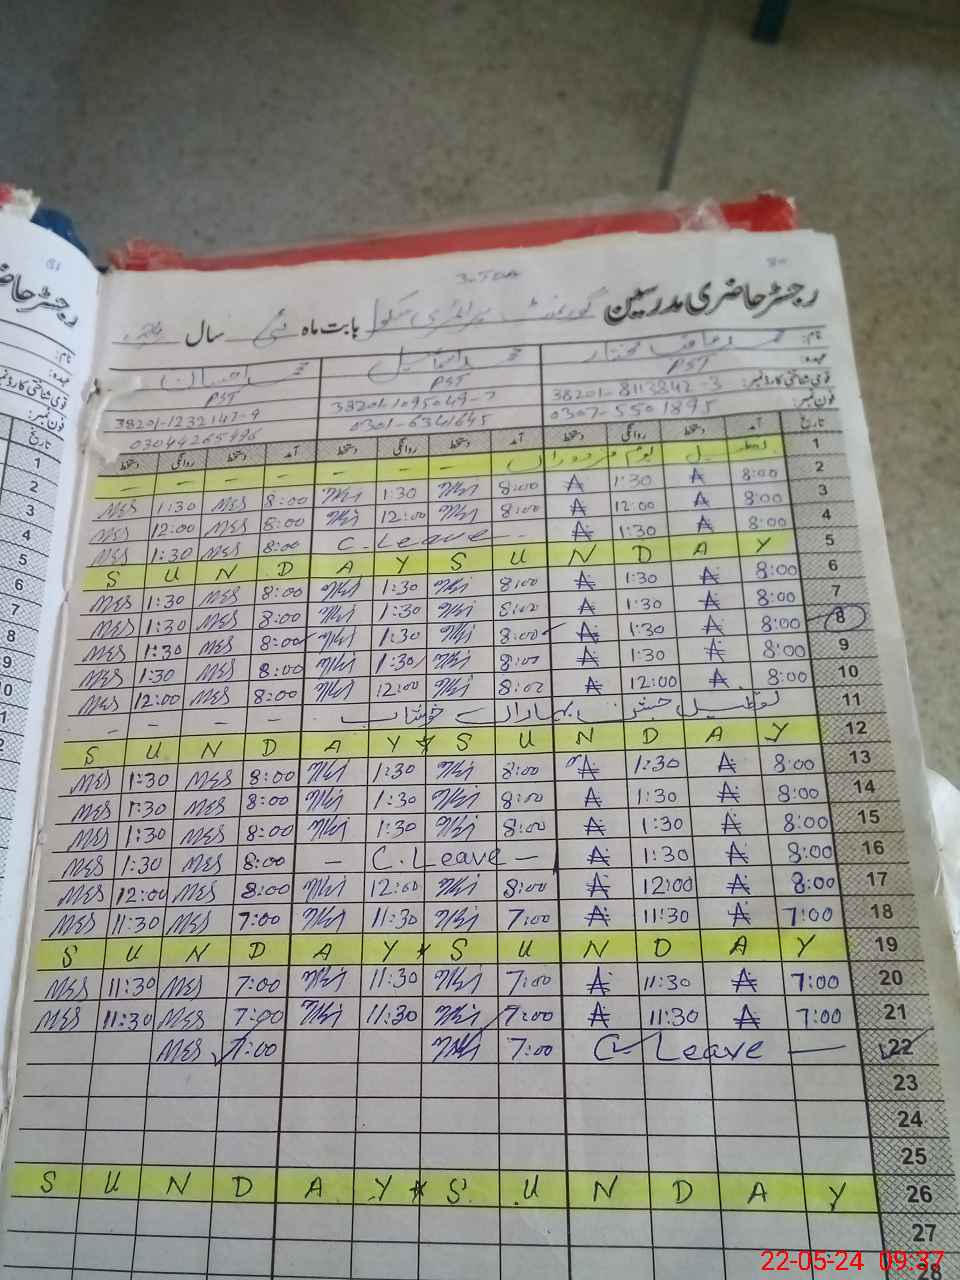 رجسٹر حاضری مدرسین گورنمنٹ پرائمری سکول بابت ماہ مئی سال
نام: محمد
عہدہ: PST PST PST
قومی شناختی کارڈ نمبر: 38201-8113842-3 38201-1095049-7 38201-1232147-9
فون نمبر: 0307-5501895 0301-6341645 03044265496
تاریخ آمد دستخط روانگی دستخط آمد دستخط روانگی دستخط آمد دستخط روانگی دستخط
1 تعطیل یوم مزدوراں - - - - - - -
2 8:00 A 1:30 A 8:00 1:30 8:00 MES 1:30 MES
3 8:00 A 12:00 A 8:00 12:00 8:00 MES 12:00 MES
4 8:00 A 1:30 A C. Leave - 8:00 MES 1:30 MES
5 S U N D A Y S U N D A Y
6 8:00 A 1:30 A 8:00 1:30 8:00 MES 1:30 MES
7 8:00 A 1:30 A 8:00 1:30 8:00 MES 1:30 MES
8 8:00 A 1:30 A 8:00 1:30 8:00 MES 1:30 MES
9 8:00 A 1:30 A 8:00 1:30 8:00 MES 1:30 MES
10 8:00 A 12:00 A 8:00 12:00 8:00 MES 12:00 MES
11 تعطیل جشن بہاراں خوشاب - - - -
12 S U N D A Y * S U N D A Y
13 8:00 A 1:30 A 8:00 1:30 8:00 MES 1:30 MES
14 8:00 A 1:30 A 8:00 1:30 8:00 MES 1:30 MES
15 8:00 A 1:30 A 8:00 1:30 8:00 MES 1:30 MES
16 8:00 A 1:30 A - C. Leave - 8:00 MES 1:30 MES
17 8:00 A 12:00 A 8:00 12:00 8:00 MES 12:00 MES
18 7:00 A 11:30 A 7:00 11:30 7:00 MES 11:30 MES
19 S U N D A Y * S U N D A Y
20 7:00 A 11:30 A 7:00 11:30 7:00 MES 11:30 MES
21 7:00 A 11:30 A 7:00 11:30 7:00 MES 11:30 MES
22 C. Leave — 7:00 7:00 MES
23
24
25
26 S U N D A Y * S U N D A Y
27
28
رجسٹر حاضری
نام:
عہدہ:
قومی شناختی کارڈ نمبر
فون نمبر:
تاریخ
1
2
3
4
5
6
7
8
9
10
22-05-24 09:37